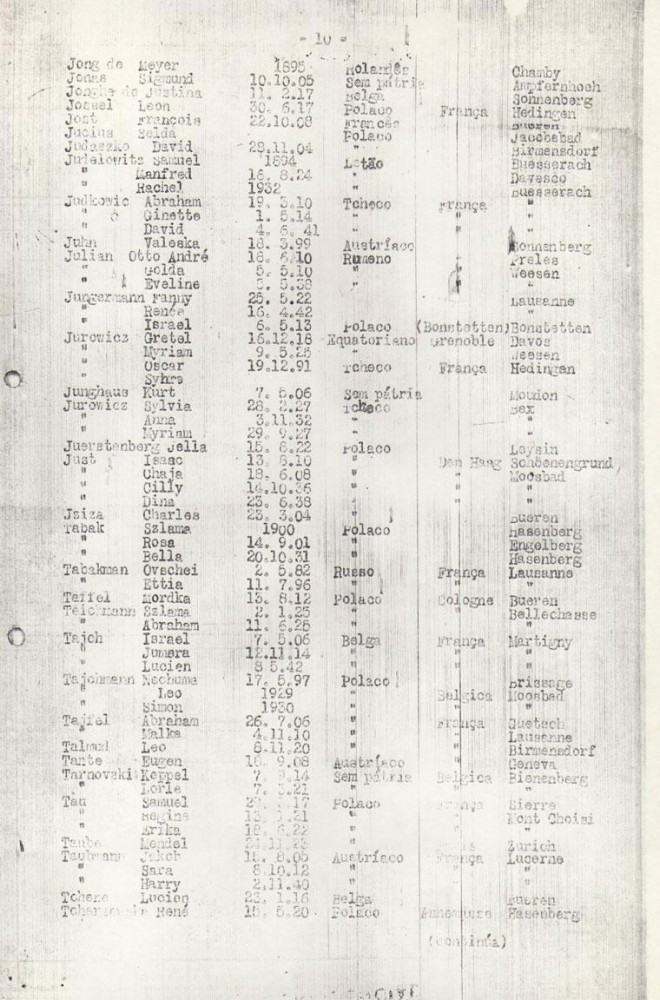 - 10 -
Jong de Meyer 1895 Holandês Chamby
Jonas Sigmund 10.10.05 Sem pátria Ampfernhoch
Jonghe de Justina 11. 2.17 Belga Sonnenberg
Jossel Leon 30. 6.17 Polaco França Hedingen
Jost François 22.10.08 Francês Bueren
Jucius Selda Polaco Jacobsbad
Judaszko David 28.11.04 " Birmensdorf
Judelowitz Samuel 1894 Letão Buesserach
" Manfred 16. 8.24 " Davesco
" Rachel 1932 " Buesserach
Judkowic Abraham 19. 3.10 Tcheco França "
" Ginette 1. 5.14 " " "
" David 4. 6. 41 " " "
Juhn Valeska 18. 3.99 Austríaco Sonnenberg
Julian Otto André 18. 6.10 Rumeno Preles
" Golda 5. 5.10 " Weesen
" Eveline 5. 5.38 " "
Jungermann Fanny 25. 5.22 Lausanne
" Renée 16. 4.42
" Israel 6. 5.13 Polaco (Bonstetten) Bonstetten
Jurowicz Gretel 16.12.18 Equatoriano Grenoble Davos
" Myriam 9. 5.25 " Weesen
" Oscar 19.12.91 Tcheco França Hedingan
" Sybre
Junghaus Kurt 7. 5.06 Sem pátria Moudon
Jurowicz Sylvia 28. 2.27 Tcheco Bex
" Anna 3.11.32 " "
" Myriam 29. 9.27 " "
Juerstenberg Jella 15. 6.22 Polaco Leysin
Just Isaac 13. 8.10 " Den Haag Schoenengrund
" Chaja 18. 6.08 " " Moosbad
" Cilly 14.10.36 " " "
" Dina 23. 6.38 " " "
Jziza Charles 23. 3.04 " Bueren
Tabak Szlama 1900 Polaco Hasenberg
" Rosa 14. 9.01 " Engelberg
" Bella 20.10.31 " Hasenberg
Tabakman Ovschei 2. 5.82 Russo França Lausanne
" Ettia 11. 7.96 " " "
Taffel Mordka 13. 8.12 Polaco Cologne Bueren
Teichmann Szlama 2. 1.25 " Bellechasse
" Abraham 11. 6.25 " "
Tajch Israel 7. 5.06 Belga França Martigny
" Jumera 12.11.14 " " "
" Lucien 8 5.42 " " "
Tajchmann Nechuma 17. 5.97 Polaco Brissage
" Leo 1929 " Belgica Moosbad
" Simon 1930 " " "
Tajfel Abraham 26. 7.06 " França Guetsch
" Malka 4.11.10 " " Lausanne
Talmud Leo 8.11.20 " " Birmensdorf
Tante Eugen 16. 9.08 Austríaco Geneva
Tarnovski Keppel 7. 9.14 Sem pátria Belgica Bienenberg
" Lorle 7. 3.21 " " "
Tau Samuel 17 Polaco França Sierre
" Regina 13. .21 " " Mont Choisi
" Erika 18. 6.22 " "
Taube Mendel " Zurich
Taubmann Jakob 15. 8.05 Austríaco França Lucerne
" Sara 8.10.12 " " "
" Harry 2.11.40 " " "
Tchene Lucien 23. 1.16 Belga Bueren
René 15. 5.20 Polaco Hasenberg
(continúa)